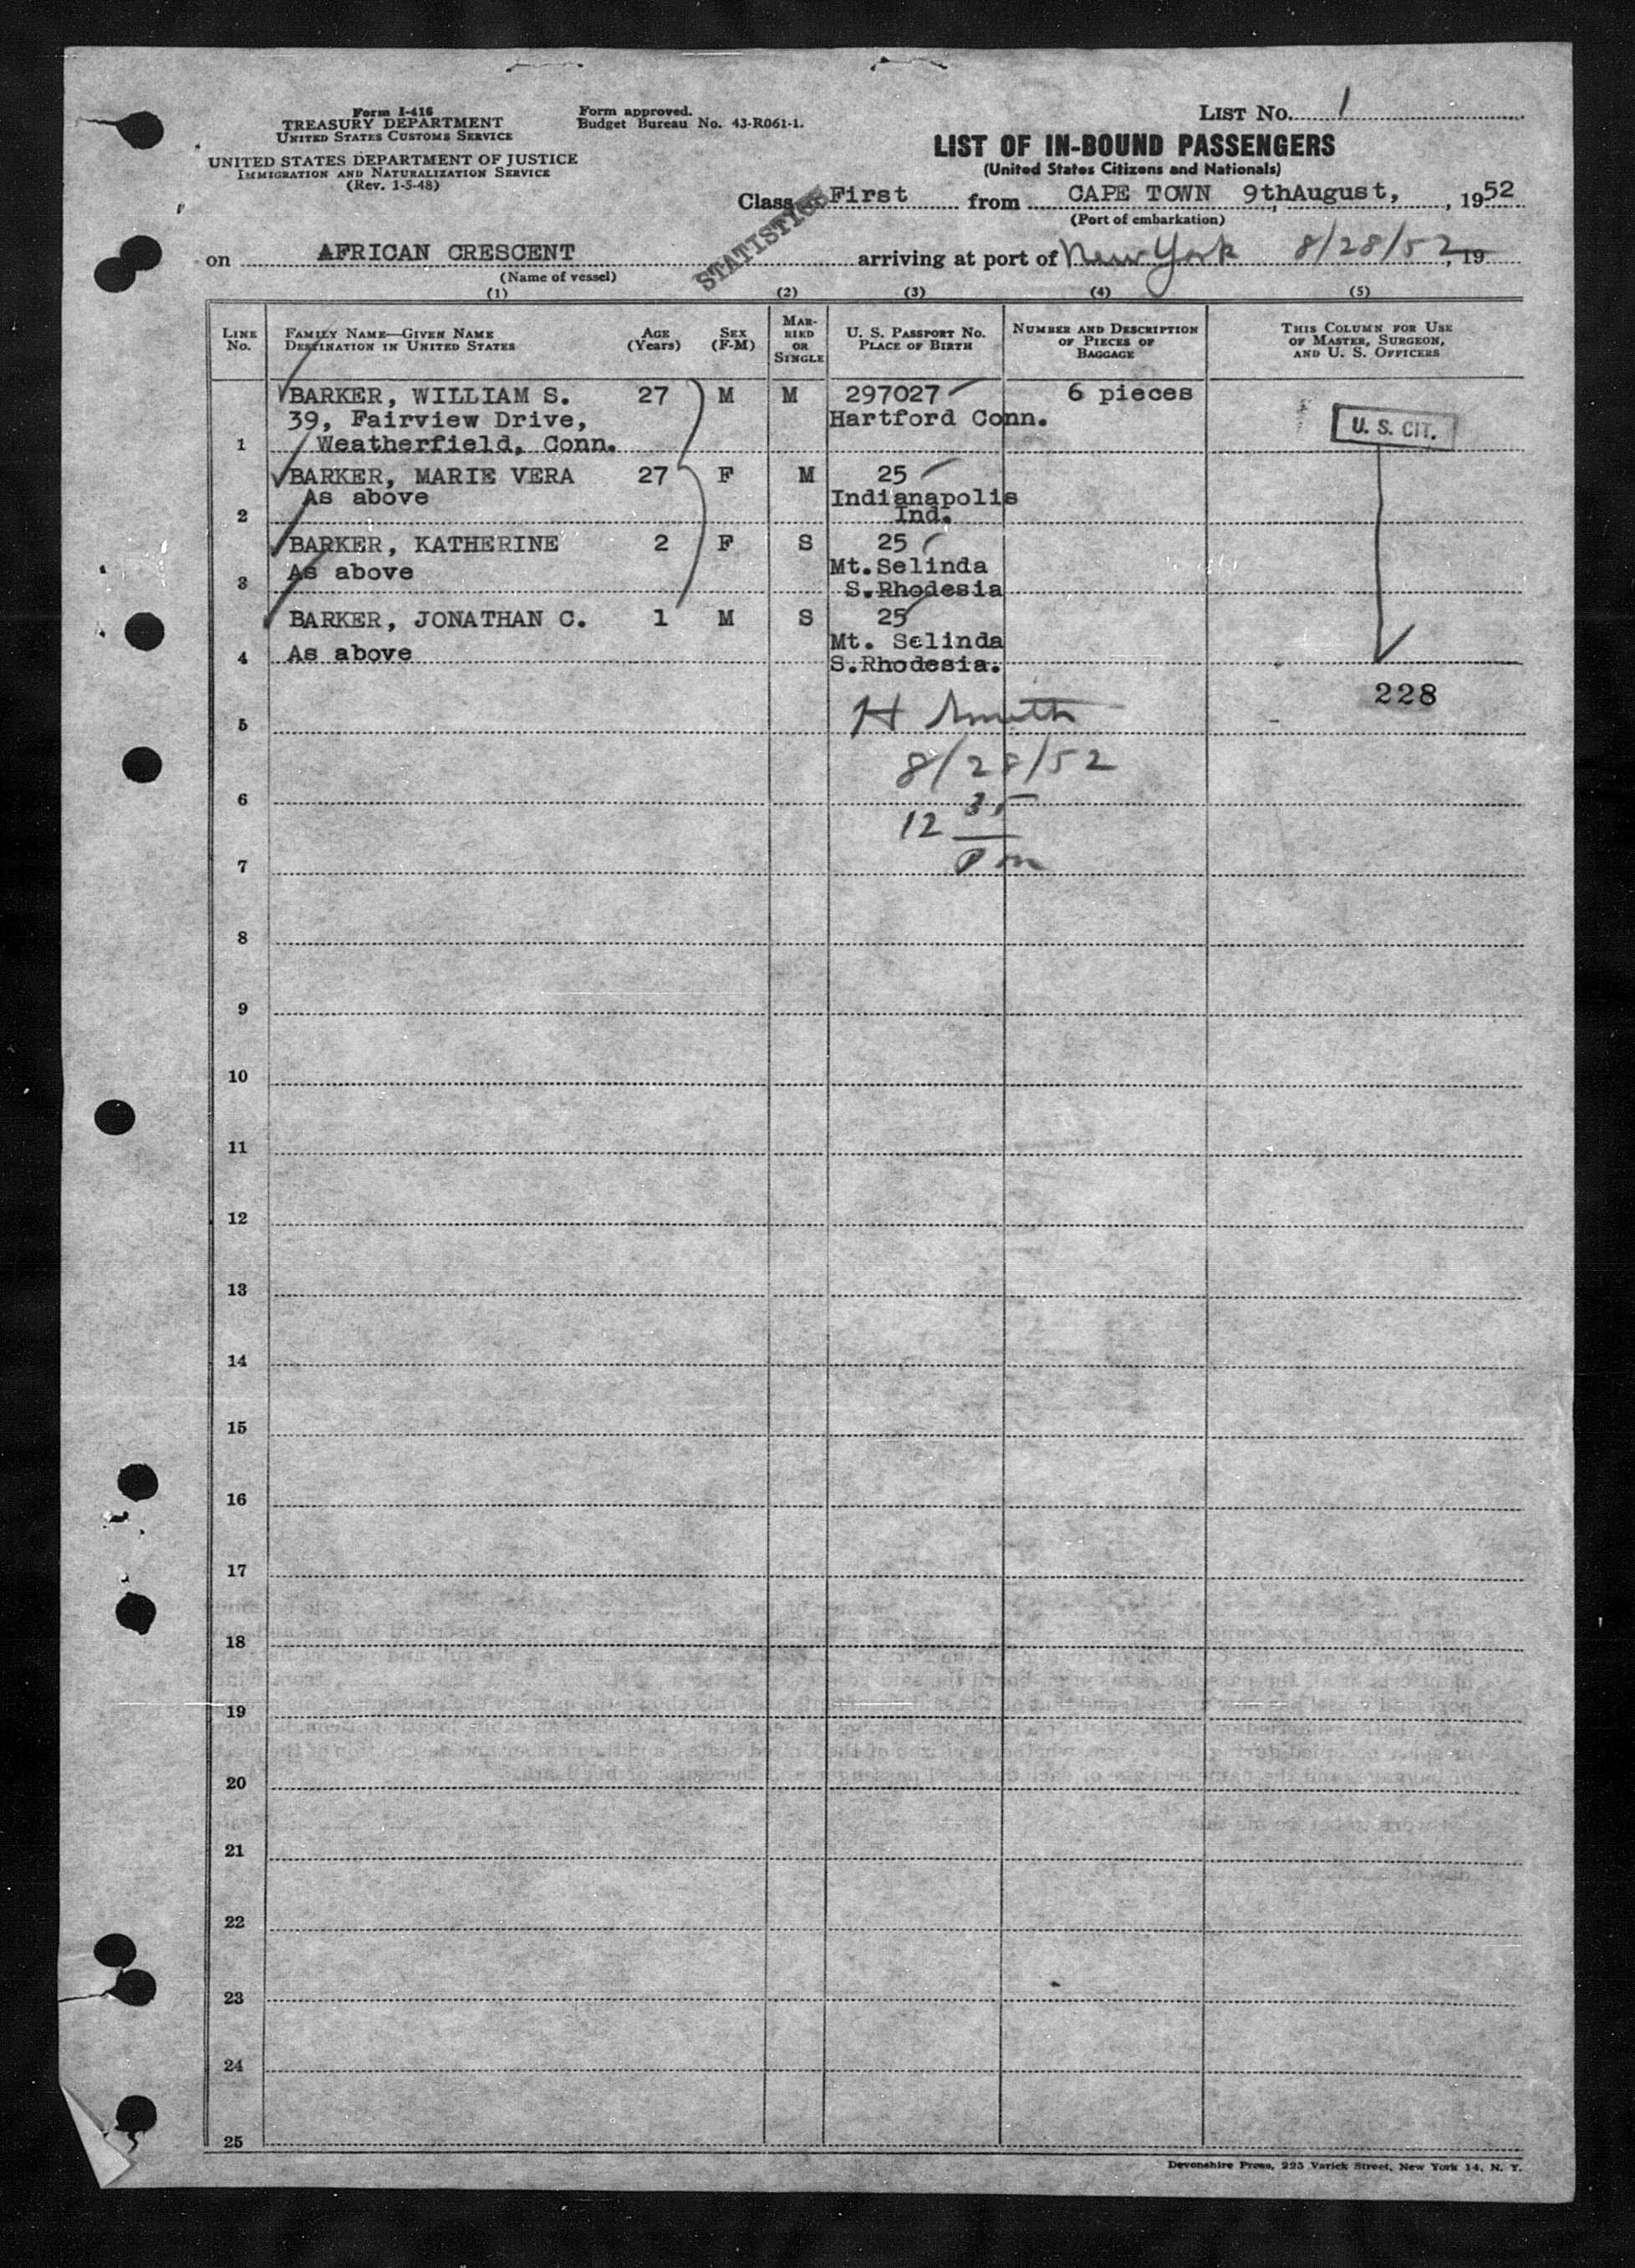 Form I-416
TREASURY DEPARTMENT
UNITED STATES CUSTOMS SERVICE
UNITED STATES DEPARTMENT OF JUSTICE
IMMIGRATION AND NATURALIZATION SERVICE
(Rev. 1-5-48)
Form approved.
Budget Bureau No. 43-R061-1.
LIST NO. 1
LIST OF IN-BOUND PASSENGERS
(United States Citizens and Nationals)
Class First from CAPE TOWN 9thAugust, , 1952
(Port of embarkation)
STATISTICS
on AFRICAN CRESCENT arriving at port of New York 8/28/52, 19
(Name of vessel)
(1) (2) (3) (4) (5)
LINE No. FAMILY NAME—GIVEN NAME DESTINATION IN UNITED STATES AGE (Years) SEX (F-M) MARRIED OR SINGLE U. S. PASSPORT NO. PLACE OF BIRTH NUMBER AND DESCRIPTION OF PIECES OF BAGGAGE THIS COLUMN FOR USE OF MASTER, SURGEON, AND U. S. OFFICERS
BARKER, WILLIAM S. 27 M M 297027 6 pieces
39, Fairview Drive, Hartford Conn. U. S. CIT.
1 Weatherfield, Conn.
BARKER, MARIE VERA 27 F M 25
As above Indianapolis
2 Ind.
BARKER, KATHERINE 2 F S 25
As above Mt.Selinda
3 S.Rhodesia
BARKER, JONATHAN C. 1 M S 25
Mt. Selinda
4 As above S.Rhodesia.
228
5 H Smith
8/28/52
6
12 35
7 Pm
8
9
10
11
12
13
14
15
16
17
18
19
20
21
22
23
24
25
Devonshire Press, 225 Varick Street, New York 14, N. Y.